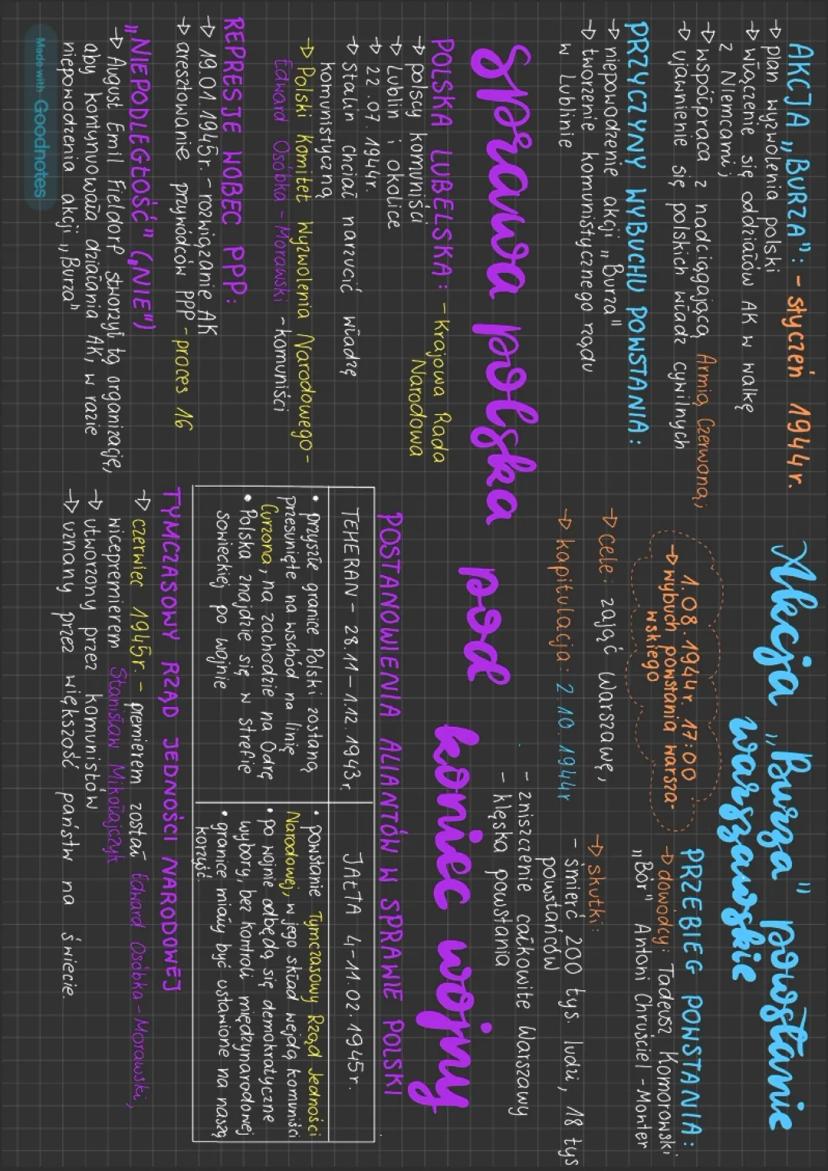 Akcja „Burza" powstanie
warszawskie
AKCJA „BURZA": - styczeń 1944r.
→ plan wyzwolenia polski
→ włączenie się oddziałów AK w walkę
z Niemcami;
→ współpraca z nadciągającą Armią Czerwoną;
→ ujawnienie się polskich władz cywilnych
PRZYCZYNY WYBUCHU POWSTANIA:
→ niepowodzenie akcji „Burza"
→ tworzenie komunistycznego rządu
w Lublinie
1.08.1944r. 17:00
→ wybuch powstania warsza-
wskiego
→ cele: zająć Warszawę,
→ kapitulacja: 2.10.1944r
PRZEBIEG POWSTANIA:
→ dowódcy: Tadeusz Komorowski
„Bór" Antoni Chruściel - Monter
→ skutki:
- śmierć 200 tys. ludzi, 18 tys
powstańców
- zniszczenie całkowite Warszawy
- klęska powstania
sprawa polska pod koniec wojny
POLSKA LUBELSKA: - Krajowa Rada
Narodowa
→ polscy komuniści
→ Lublin i okolice
→ 22.07.1944r.
→ Stalin chciał narzucić władzę
komunistyczną
→ Polski Komitet Wyzwolenia Narodowego -
Edward Osóbka - Morawski - komuniści
REPRESJE WOBEC PPP:
→ 19.01.1945r. - rozwiązanie AK
→ aresztowanie przywódców PPP - proces 16
„NIEPODLEGŁOŚĆ" („NIE")
→ August Emil Fieldorf stworzył tą organizację,
aby kontynuowała działania AK, w razie
niepowodzenia akcji „Burza"
POSTANOWIENIA ALIANTÓW W SPRAWIE POLSKI
TEHERAN - 28.11 - 1.12.1943r,
• przyszłe granice Polski zostaną
przesunięte na wschód na linię
Curzona, na zachodzie na Odrę
• Polska znajdzie się w strefie
sowieckiej po wojnie
JAŁTA 4-11.02.1945r.
• powstanie Tymczasowy Rząd Jedności
Narodowej, w jego skład wejdą komuniści
• po wojnie odbędą się demokratyczne
wybory, bez kontroli międzynarodowej
• granice miały być ustawione na naszą
korzyść
TYMCZASOWY RZĄD JEDNOŚCI NARODOWEJ
→ czerwiec 1945r. - premierem został Edward Osóbka-Morawski,
wicepremierem Stanisław Mikołajczyk
→ utworzony przez komunistów
→ uznany przez większość państw na świecie.
Made with Goodnotes